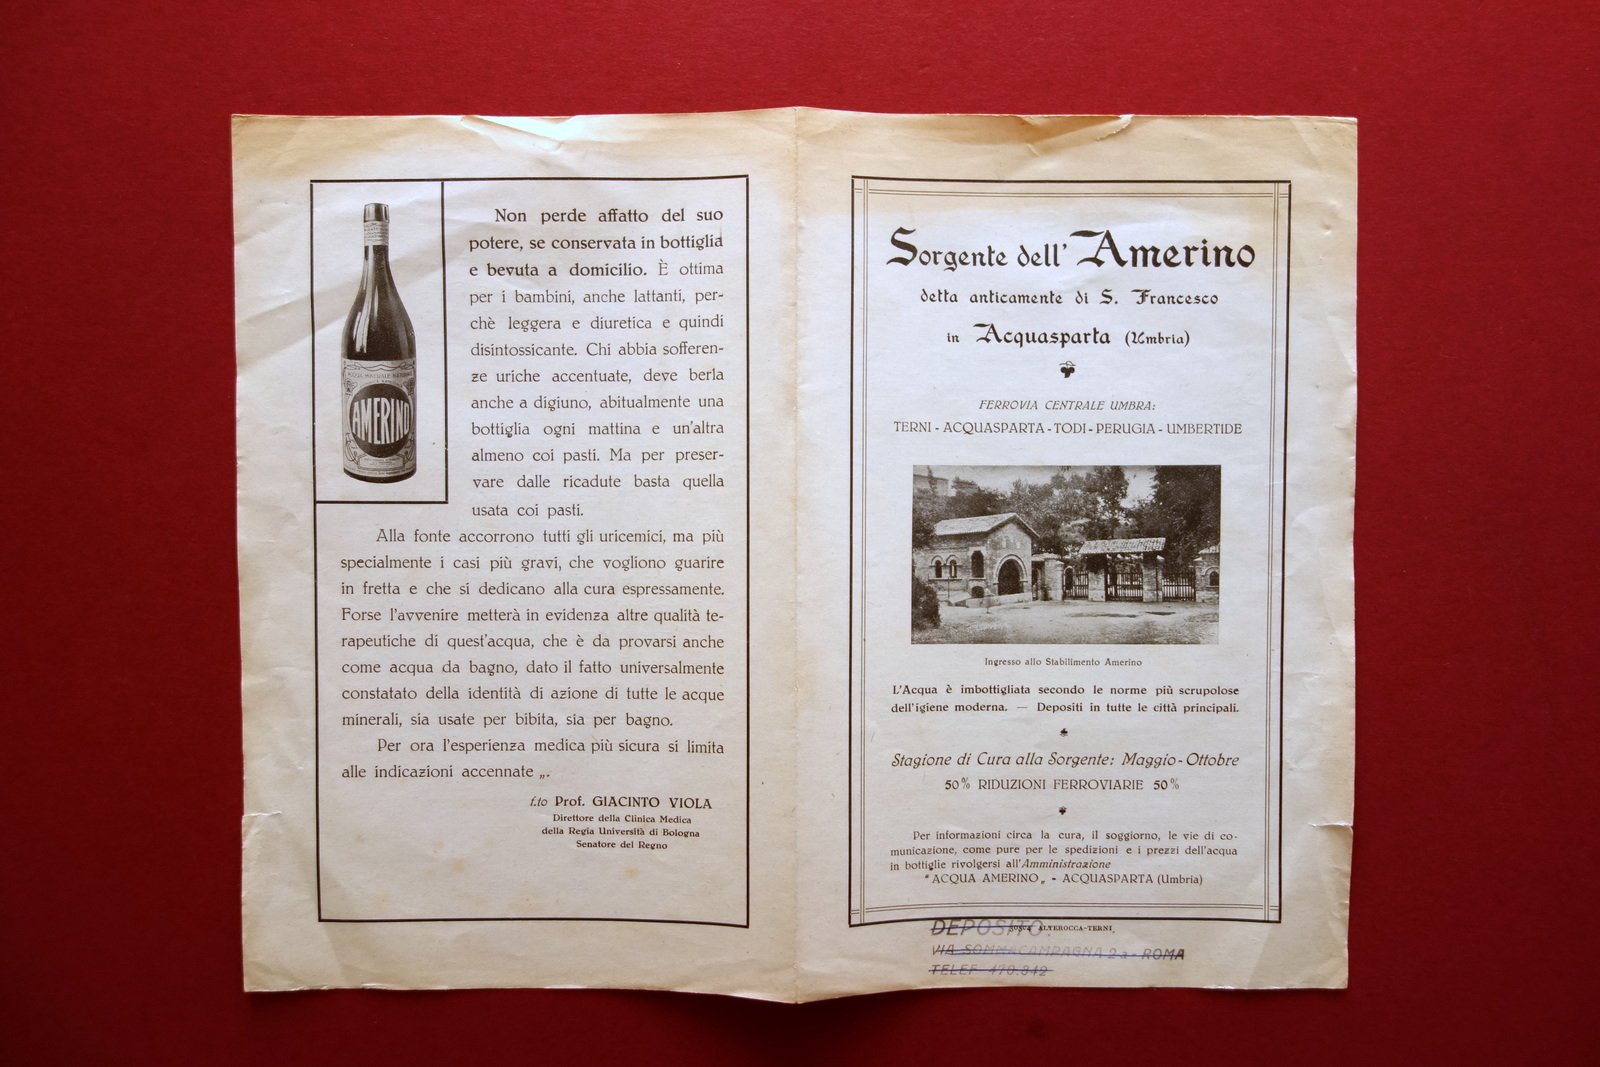 AMERINO
Non perde affatto del suo
potere, se conservata in bottiglia
e bevuta a domicilio. È ottima
per i bambini, anche lattanti, per-
chè leggera e diuretica e quindi
disintossicante. Chi abbia sofferen-
ze uriche accentuate, deve berla
anche a digiuno, abitualmente una
bottiglia ogni mattina e un'altra
almeno coi pasti. Ma per preser-
vare dalle ricadute basta quella
usata coi pasti.
Alla fonte accorrono tutti gli uricemici, ma più
specialmente i casi più gravi, che vogliono guarire
in fretta e che si dedicano alla cura espressamente.
Forse l'avvenire metterà in evidenza altre qualità te-
rapeutiche di quest'acqua, che è da provarsi anche
come acqua da bagno, dato il fatto universalmente
constatato della identità di azione di tutte le acque
minerali, sia usate per bibita, sia per bagno.
Per ora l'esperienza medica più sicura si limita
alle indicazioni accennate „.
f.to Prof. GIACINTO VIOLA
Direttore della Clinica Medica
della Regia Università di Bologna
Senatore del Regno
Sorgente dell' Amerino
detta anticamente di S. Francesco
in Acquasparta (Umbria)
FERROVIA CENTRALE UMBRA:
TERNI - ACQUASPARTA - TODI - PERUGIA - UMBERTIDE
Ingresso allo Stabilimento Amerino
L'Acqua è imbottigliata secondo le norme più scrupolose
dell'igiene moderna. — Depositi in tutte le città principali.
Stagione di Cura alla Sorgente: Maggio - Ottobre
50% RIDUZIONI FERROVIARIE 50%
Per informazioni circa la cura, il soggiorno, le vie di co-
municazione, come pure per le spedizioni e i prezzi dell'acqua
in bottiglie rivolgersi all'Amministrazione
"ACQUA AMERINO„ - ACQUASPARTA (Umbria)
DEPOSITO: ALTEROCCA-TERNI
VIA SOMMACAMPAGNA 2a - ROMA
TELEF 470.842